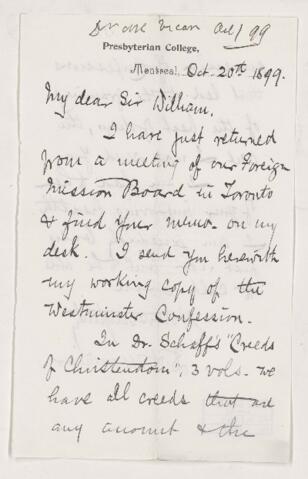 Dr Mac Vicar Oct / 99
Presbyterian College,
Montreal, Oct. 20th 1899.
My dear Sir William,
I have just returned
from a meeting of our Foreign
Mission Board in Toronto
& find your memo. on my
desk. I send you herewith
my working copy of the
Westminster Confession.
In Dr. Schaff's "Creeds
of Christendom", 3 vols. we
have all creeds that are
any account & the